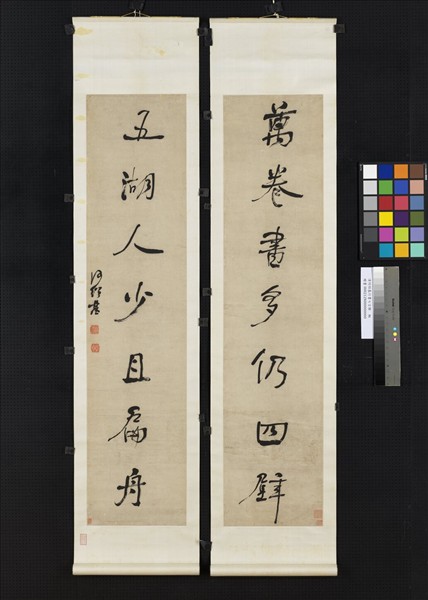 萬卷書多仍四壁
五湖人少且扁舟